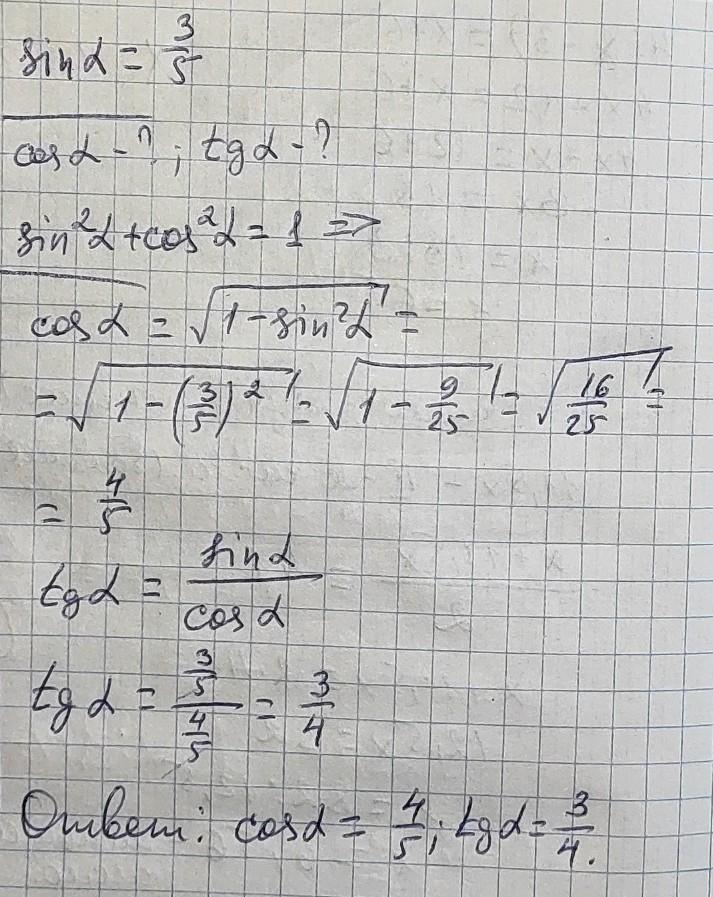 sin α = 3/5
cos α - ?; tg α - ?
sin²α + cos²α = 1 =>
cos α = √(1 - sin²α) =
= √(1 - (3/5)²) = √(1 - 9/25) = √(16/25) =
= 4/5
tg α = sin α / cos α
tg α = (3/5)/(4/5) = 3/4
Ответ: cos α = 4/5; tg α = 3/4.